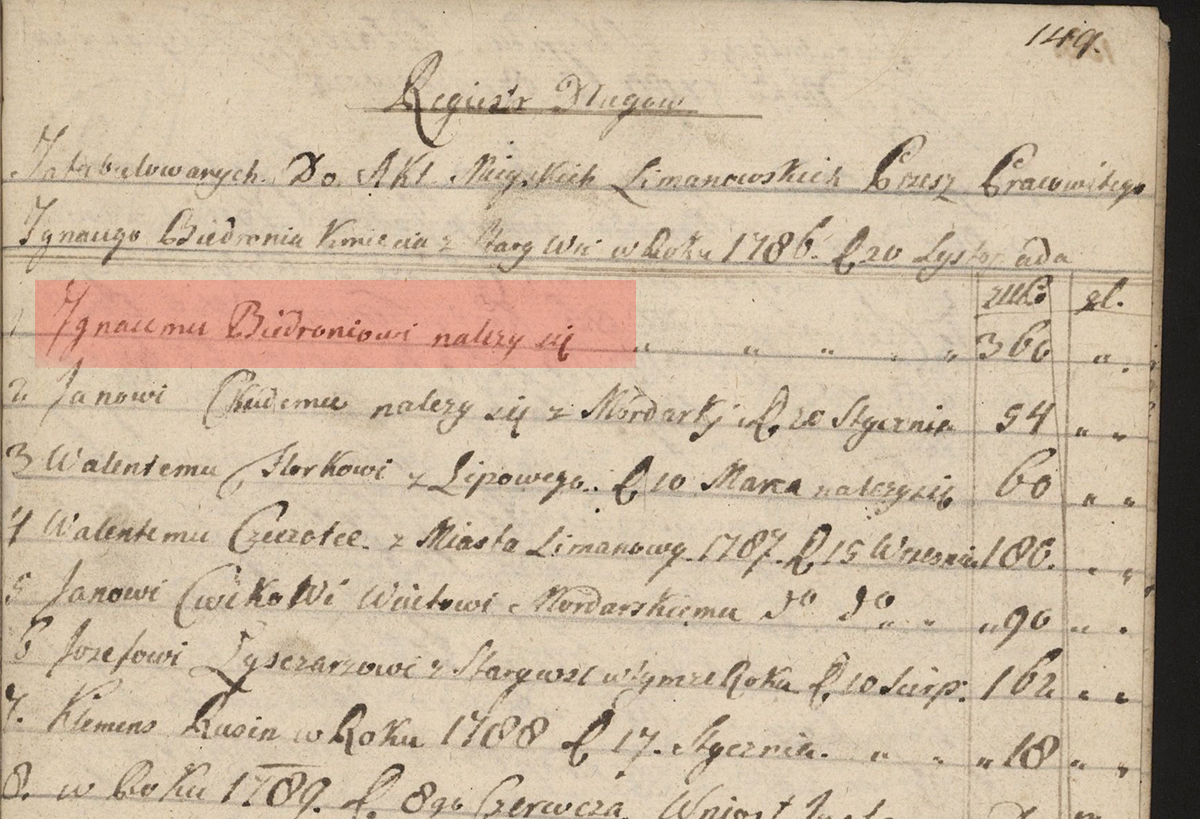 149.
Regiestr Dlugow
Intabulowanych Do Akt Mieyskich Limanowskich Przesz Pracowitego
Ignacego Biedronia Kmiecia z Starey Wsi w Roku 1786. D 20 Lystopada
zllb: gl.
1 Ignacemu Biedroniowi nalezy się „ „ „ „ „ 360 „.
2 Janowi Chudemu nalezy się z Mordarky D 20 Stycznia 54 „ „
3 Walentemu z Lipowego. D 10 Marca nalezy się 60 „ „
4 Walentemu Czeczotce z Miasta Limanowy. 1787. D 15 Wrzesnia 180. „ „
5 Janowi Cwikowi Woitowi Mordarskiemu do do „ „ 90 „ „
6 Jozefowi z Starey wsi w tymze Roku D 10 Sierp: 162 „ „
7. Klemens Rusin w Roku 1788 D 17. Stycznia. „ „ „ 18 „ „
8. w Roku 1789. D 8go Czerwcza Wniost